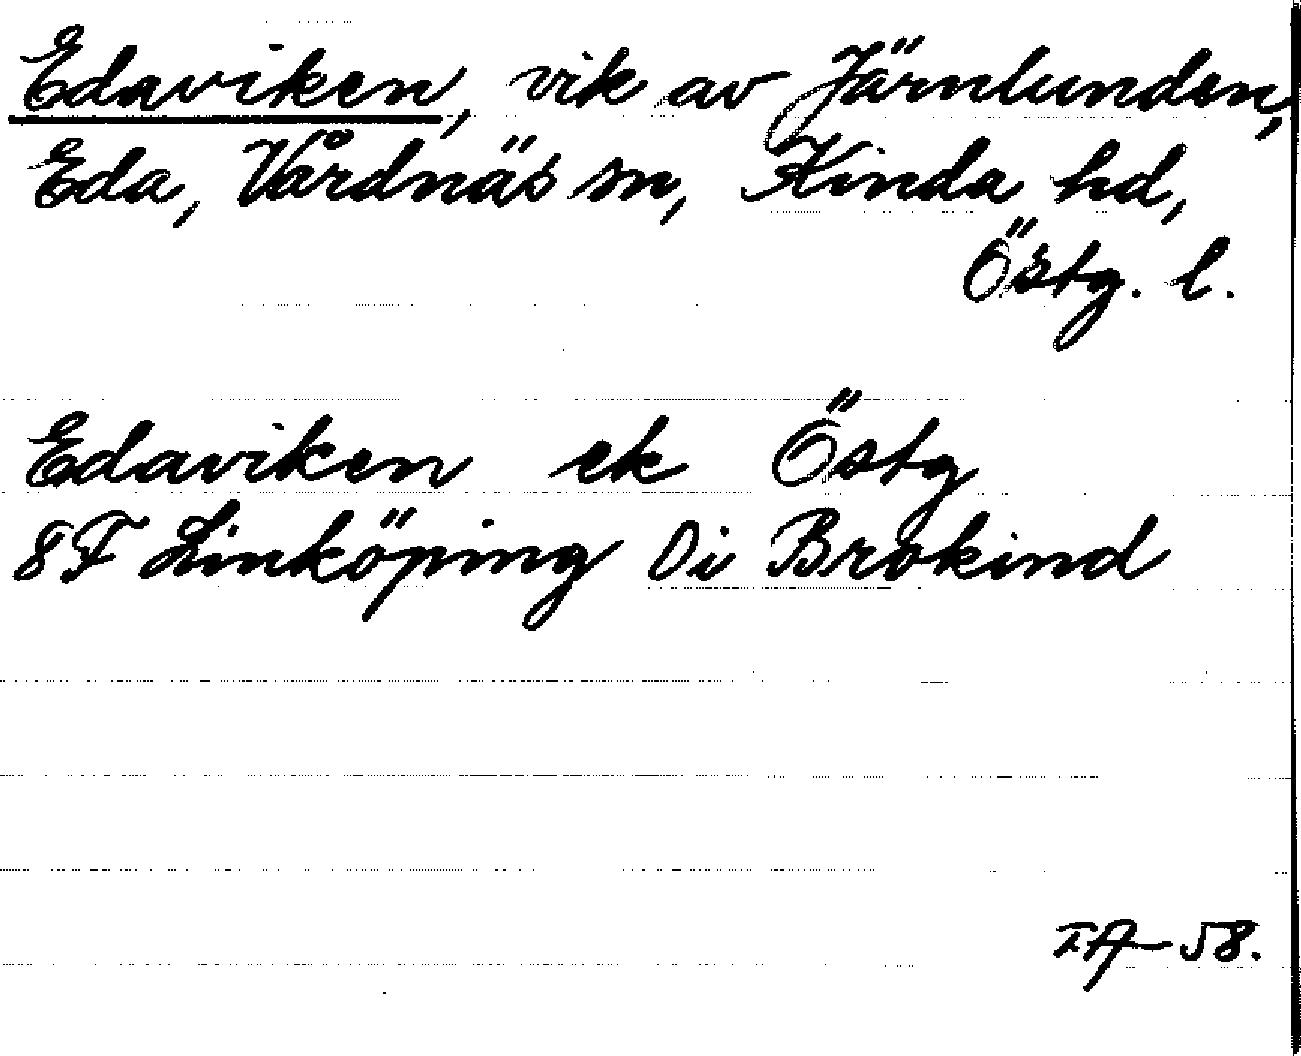 Edaviken, vik av Järnlunden,
Eda, Vårdnäs sn, Kinda hd,
Östg. l.
Edaviken ek Östg
8F Linköping 0i Brokind
IA-58.